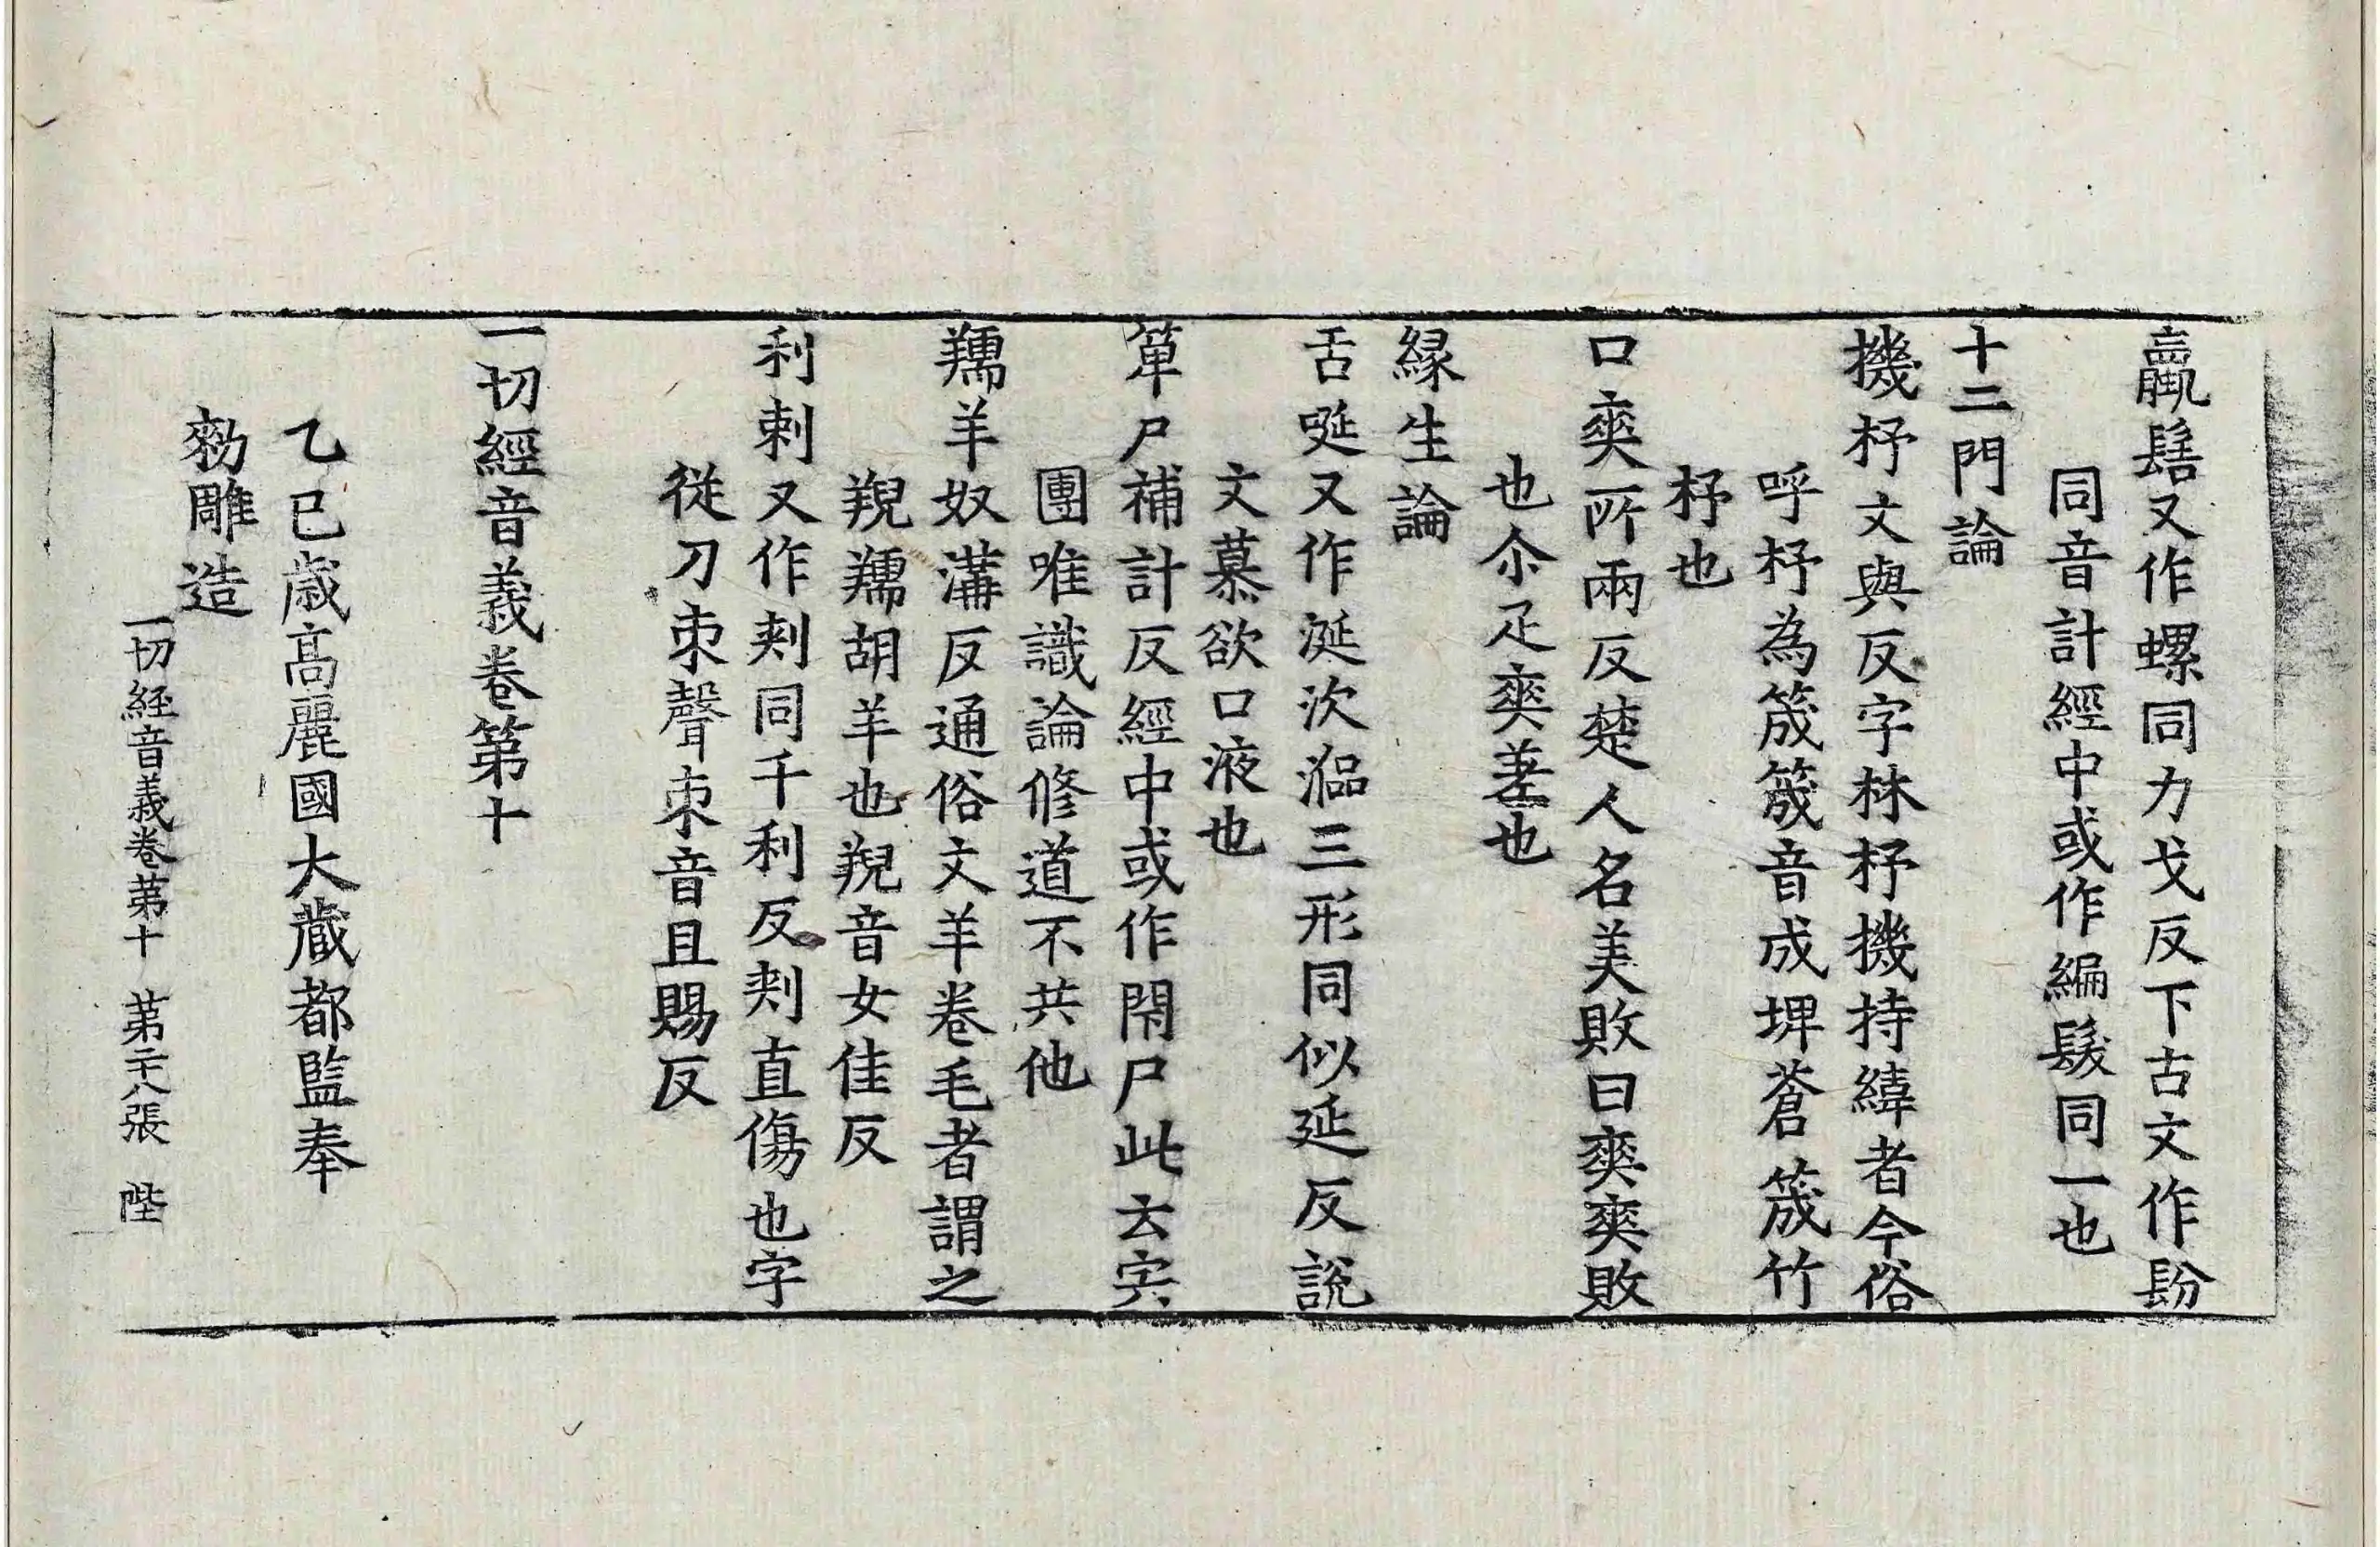 蠃髻又作螺同力戈反下古文作䯻
同音計經中或作編髮同一也
十二門論
機杼文與反字林杼機持緯者今俗
呼杼為筬筬音成埤蒼筬竹
杼也
口爽所兩反楚人名美敗曰爽爽敗
也尒疋爽差也
緣生論
舌唌又作涎次㳄三形同似延反說
文慕欲口液也
箄尸補計反經中或作閇尸此云宍
團唯識論修道不共他
羺羊奴溝反通俗文羊卷毛者謂之
羺胡羊也音女佳反
利刺又作㓨同千利反㓨直傷也字
從刀朿聲朿音且賜反
一切經音義卷第十
乙巳歲高麗國大藏都監奉
勑雕造
一切経音義卷第十 第二十八張 陛